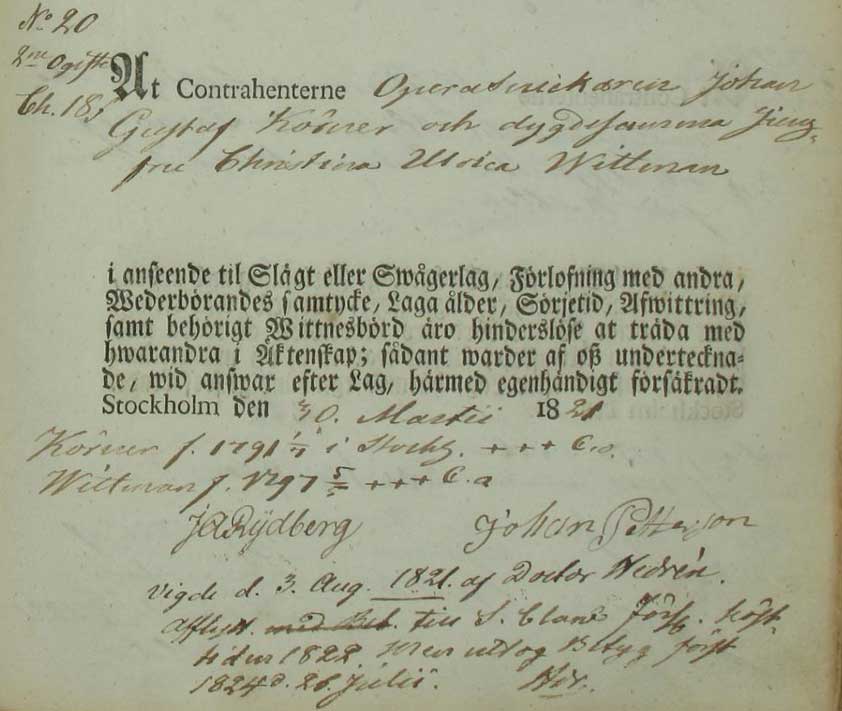 No 20
2ne Ogifte
Ch. 185
At Contrahenterne Operasnickaren Johan
Gustaf Körner och dygdesamma Jung-
fru Christina Ulrica Wittman
i anseende til Slägt eller Swågerlag, Förlofning med andra,
Wederbörandes samtycke, Laga ålder, Sörjetid, Afwittring,
samt behörigt Wittnesbörd äro hinderslöse at träda med
hwarandra i Äktenskap; sådant warder af oß underteckna-
de, wid answar efter Lag, härmed egenhändigt försäkradt.
Stockholm den 30. Martii 1821
Körner f. 1791 i Stockh. + + + C.a.
Wittman f. 1797 + + + C. a
Rydberg Johan Petterson
Vigde d. 3. Aug. 1821. af Doctor Hedrén.
Afflytt. till S. Claræ Förs. höst-
tiden 1822. Men uttog Betyg först
1824 d. 28. Julii. Hdr.